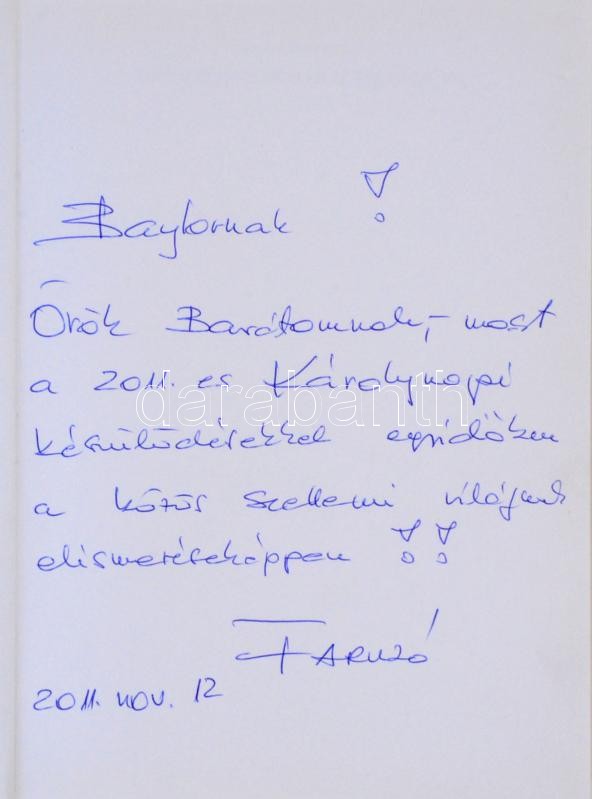 Baylornak !
Örök Barátomnak, - most
a 2011. es Károlynapi
készülődésekkel egyidőben
a közös szellemi világunk
elismeréseképpen !!
Faruzó
2011. nov. 12
darabanth